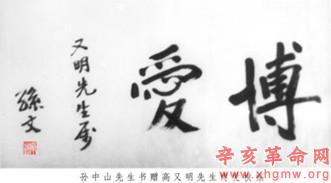 博愛
又明先生属
孫文
孙中山先生书赠高又明先生
辛亥革命网
www.xhgmw.com